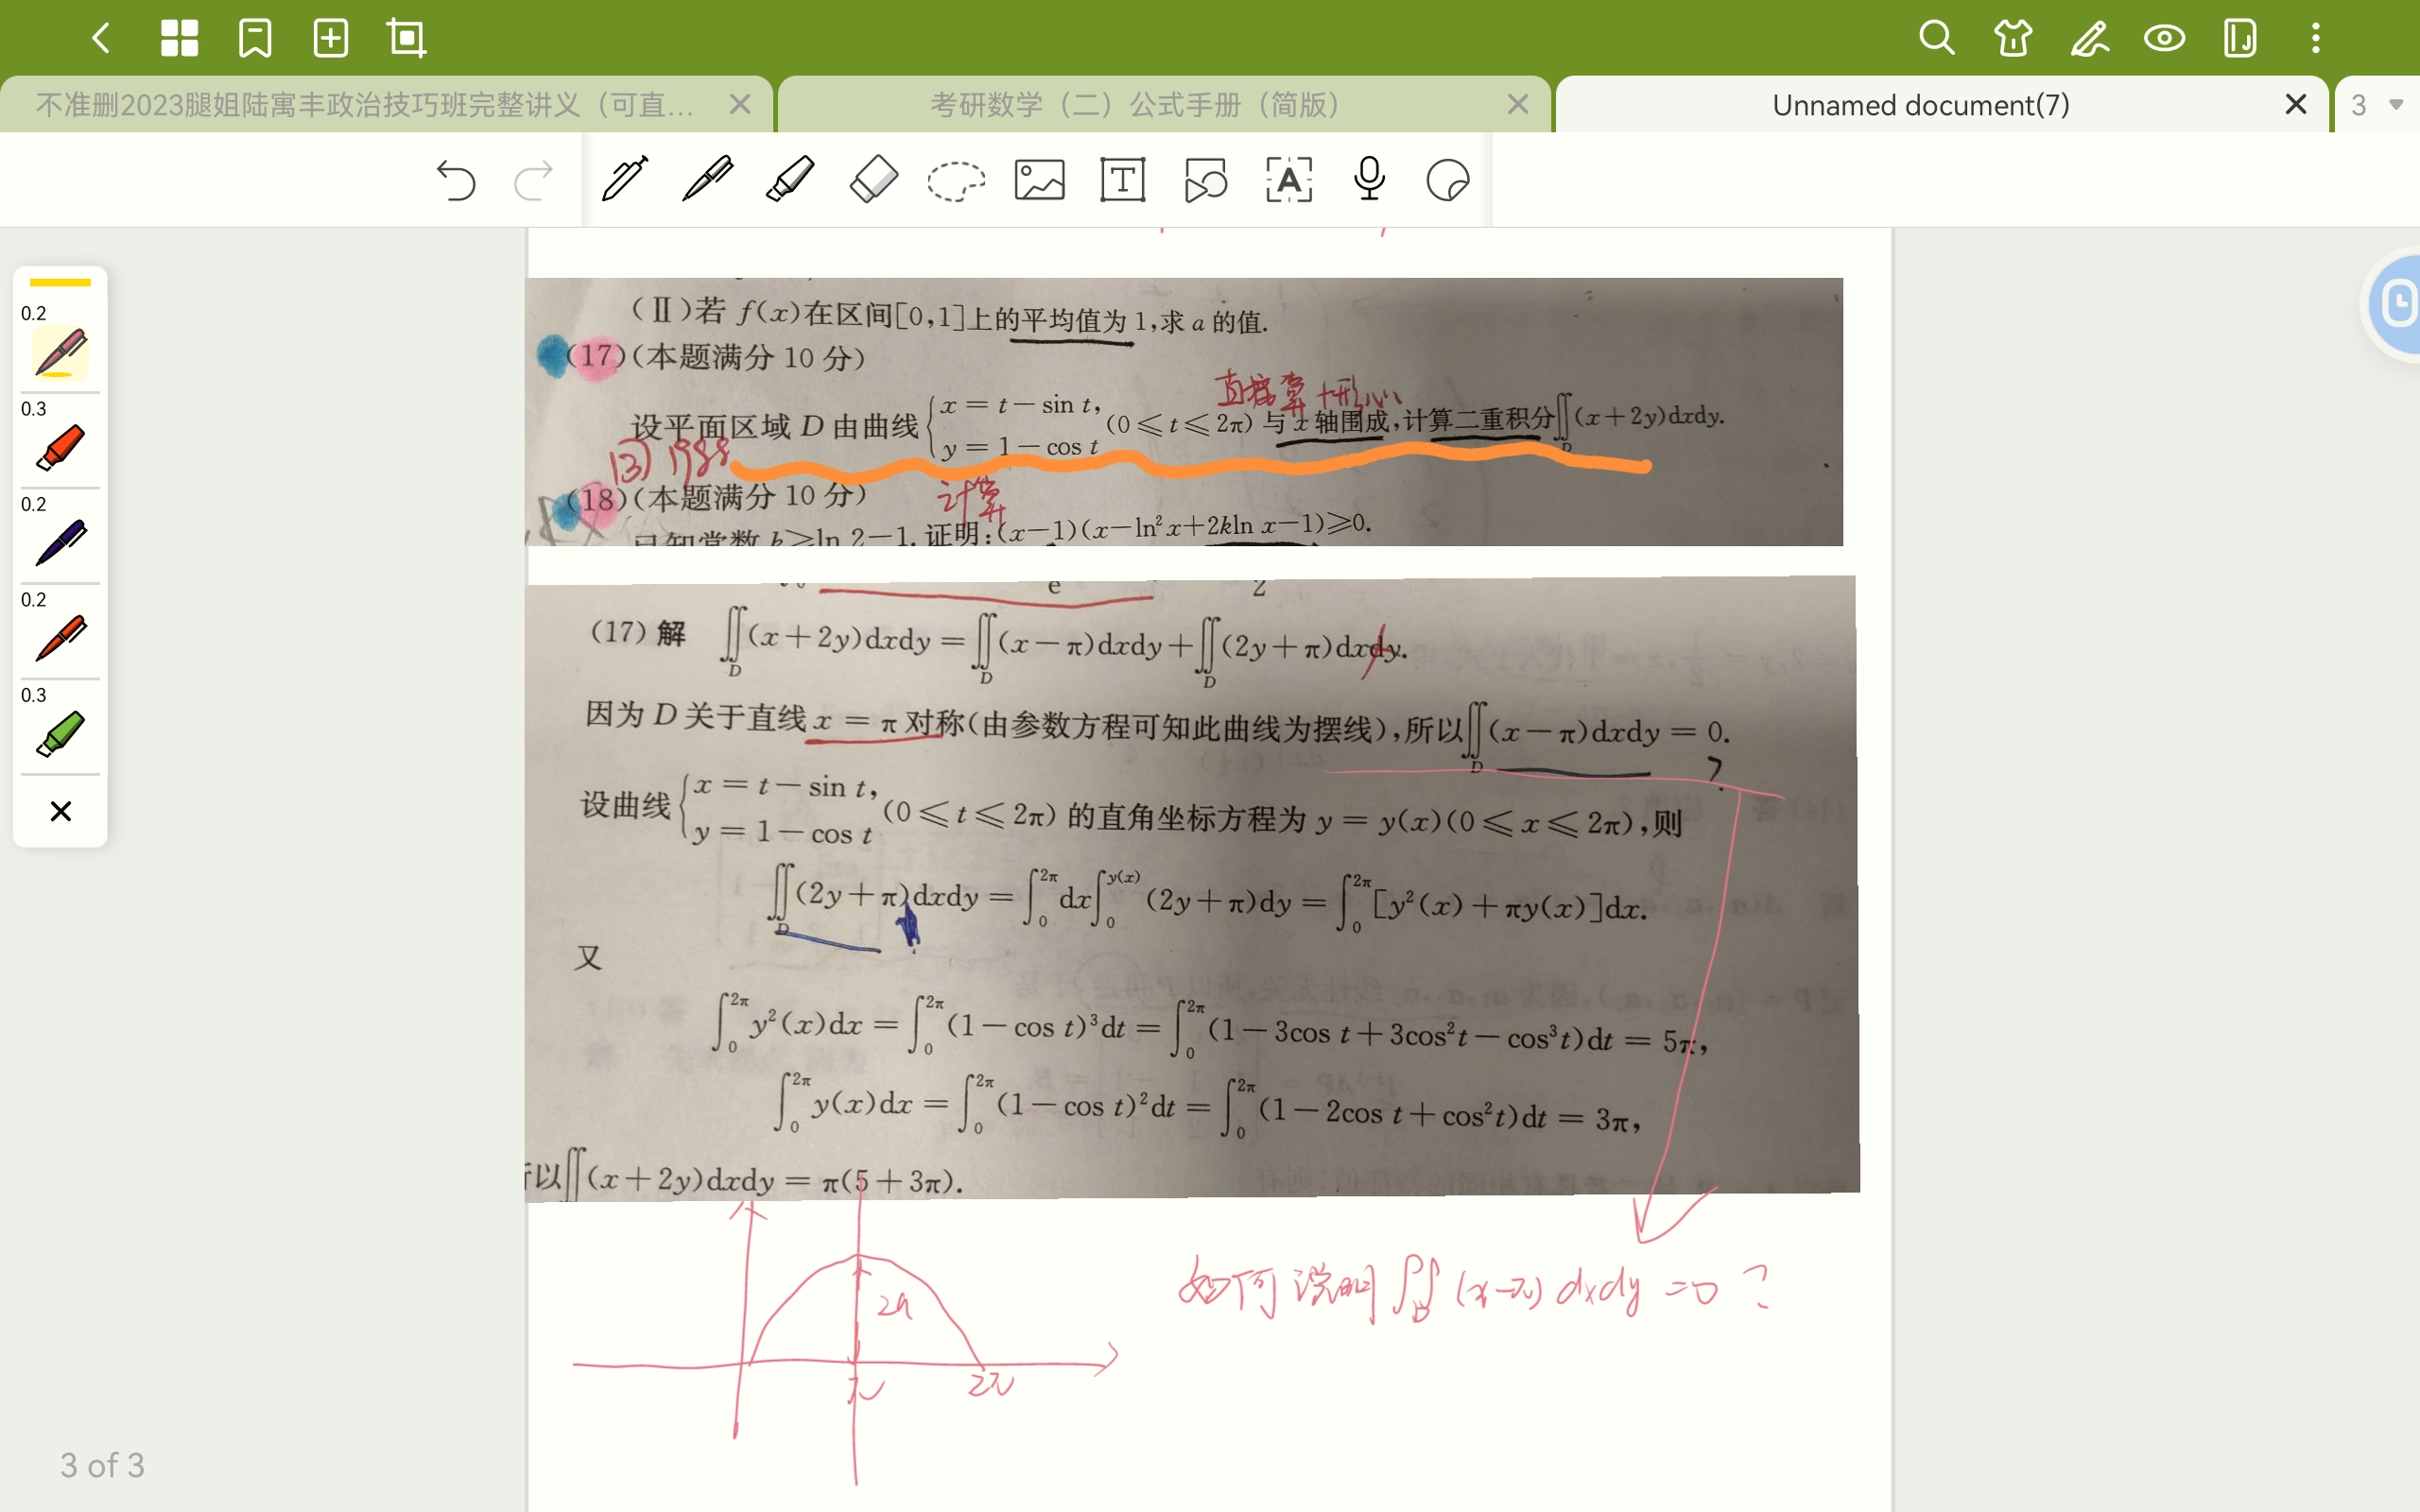 不准删2023腿姐陆寓丰政治技巧班完整讲义（可直...
考研数学（二）公式手册（简版）
Unnamed document(7)
3
0.2
0.3
0.2
0.2
0.3
(Ⅱ)若 f(x)在区间[0,1]上的平均值为 1,求 a 的值.
(17)(本题满分 10 分)
直接算+形心
设平面区域 D 由曲线{x = t − sin t, y = 1 − cos t (0 ⩽ t ⩽ 2π) 与 x 轴围成,计算二重积分∬_D (x+2y)dxdy.
13) 1988
(18)(本题满分 10 分)
计算
已知常数 k⩾ln 2−1. 证明:(x−1)(x−ln²x+2kln x−1)⩾0.
e 2
(17) 解 ∬_D (x+2y)dxdy = ∬_D (x−π)dxdy + ∬_D (2y+π)dxdy.
因为 D 关于直线 x = π 对称(由参数方程可知此曲线为摆线),所以∬_D (x−π)dxdy = 0.
?
设曲线{x = t − sin t, y = 1 − cos t (0 ⩽ t ⩽ 2π) 的直角坐标方程为 y = y(x)(0 ⩽ x ⩽ 2π),则
∬_D (2y+π)dxdy = ∫_0^{2π} dx ∫_0^{y(x)} (2y+π)dy = ∫_0^{2π} [y²(x) + πy(x)]dx.
又
∫_0^{2π} y²(x)dx = ∫_0^{2π} (1 − cos t)³dt = ∫_0^{2π} (1 − 3cos t + 3cos²t − cos³t)dt = 5π,
∫_0^{2π} y(x)dx = ∫_0^{2π} (1 − cos t)²dt = ∫_0^{2π} (1 − 2cos t + cos²t)dt = 3π,
所以∬(x+2y)dxdy = π(5+3π).
2a
π 2π
如何说明 ∬_D (x−π) dxdy =0 ?
3 of 3